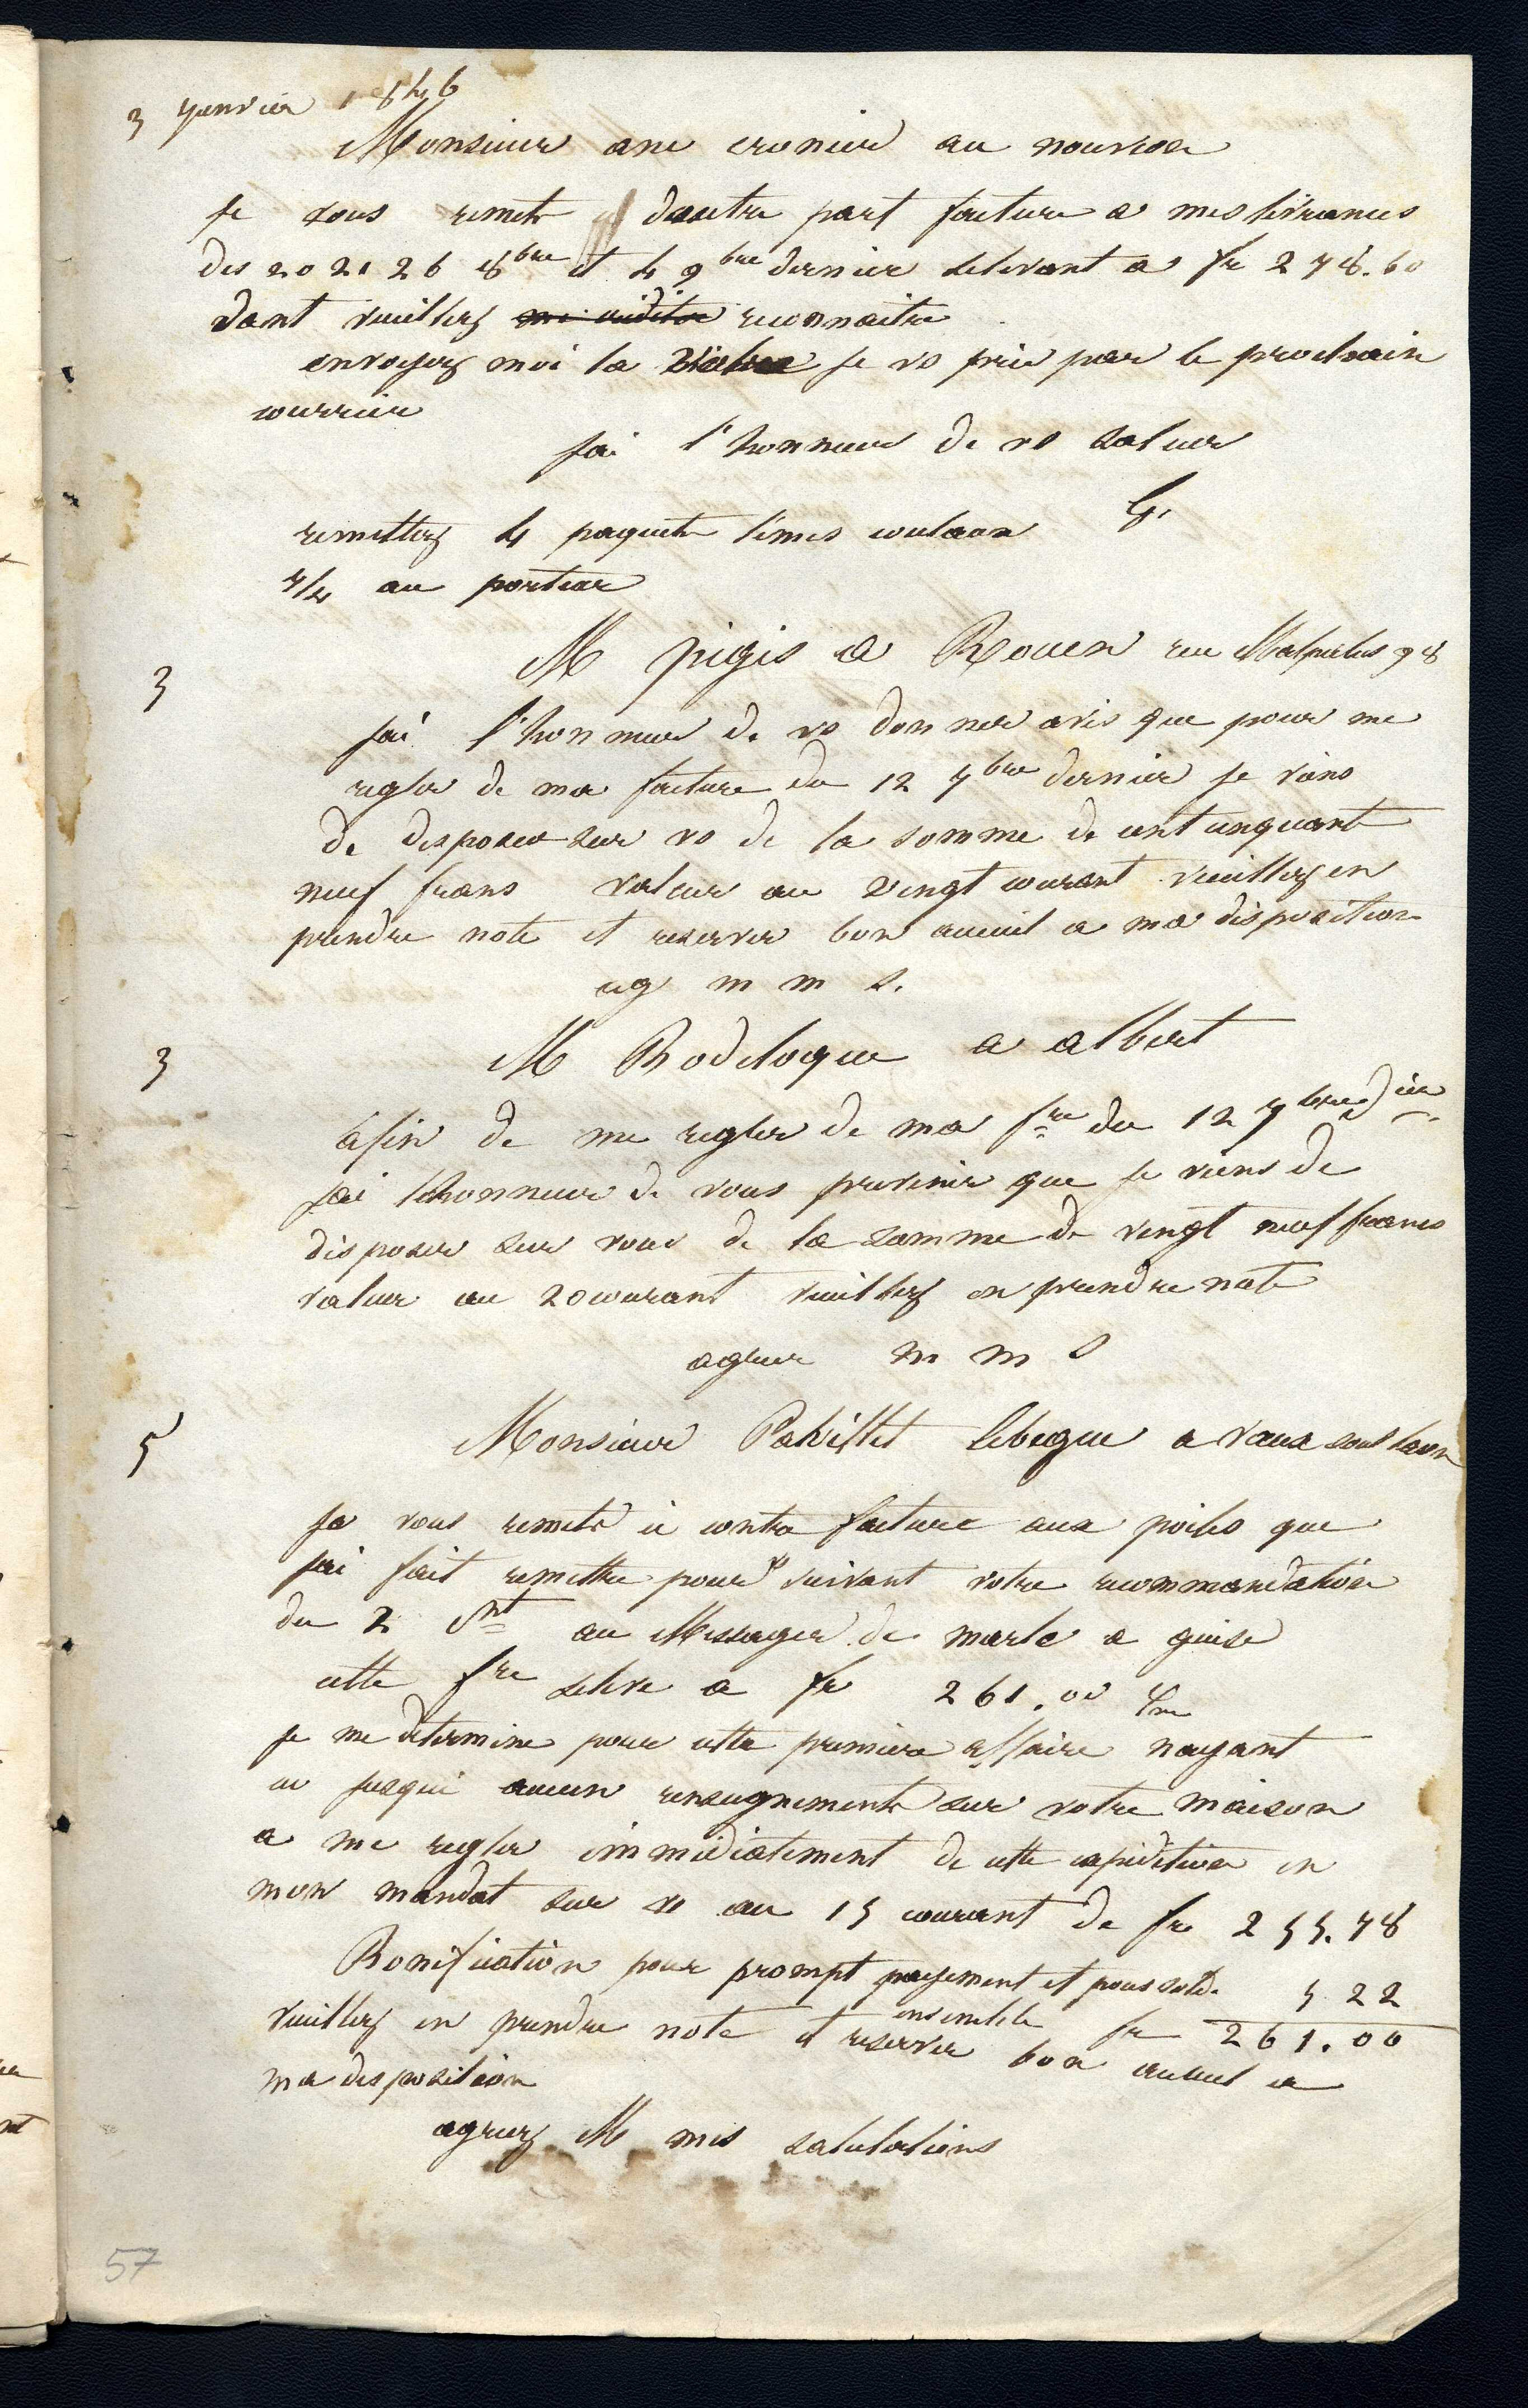 3 Janvier 1846
Monsieur ane cronier au nouvion
je vous remets d'autre part facture a mes livrances
des 20 21 26 8bre et 4 9bre dernier selevant a fr 278.60
dont veuillez me créditer reconnaitre
envoyez moi la je vs prie par le prochain
courrier
jai l'honneur de vs saluer
G.
remettez 4 paquets limes
4/4 au porteur
3
M pigis a Rouen rue Malpalus 98
jai l'honneur de vs donner avis que pour me
regler de ma facture du 12 7bre dernier je viens
de disposer sur vs de la somme de cent cinquante
neuf francs valeur au vingt courant veuillez en
prendre note et reserver bon acceuil a ma disposition
ag m m s.
3
M Rodeloque a albert
afin de me regler de ma fre du 12 7bre dier
jai lhonneur de vous prevenir que je viens de
disposer sur vous de la somme de vingt neuf francs
valeur au 20 courant veuillez en prendre note
agreer m m s
5
Monsieur Pakillet lebegue a vaux sous laon
je vous remets ci contre facture aux poiles que
jai fait remettre pour vs suivant votre recommandation
du 2 ct au Messager de marle a guise
cette fre selève a fr 261.00
je me determine pour cette premiere affaire nayant
eu jusqui aucun renseignements sur votre maison
a me regler immédiatement de cette expédition en
mon mandat sur vs au 15 courant de fr 255.78
Bonification pour prompt payement et pour solde 5 22
ensemble fr 261.00
veuillez en prendre note et reserver bon acceuil a
ma disposition
agreez M mes salutations
57